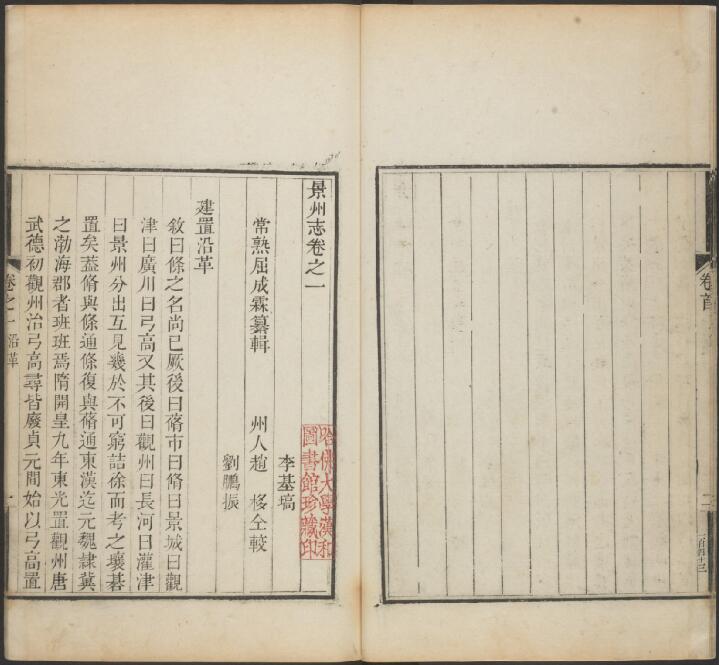 卷首
二
一百四十三
景州志卷之一
哈佛大學漢和
圖書館珍藏印
李基塙
常熟屈成霖纂輯 州人趙 移仝較
劉鵬振
建置沿革
敘曰條之名尚已厥後曰蓨市曰脩曰景城曰觀
津曰廣川曰弓高又其後曰觀州曰長河曰灌津
曰景州分出互見幾於不可窮詰徐而考之壤碁
置矣葢脩與條通條復與蓨通東漢迄元魏隷冀
之渤海郡者班班焉隋開皇九年東光置觀州唐
武德初觀州治弓高尋皆廢貞元間始以弓高置
卷之一 沿革
一